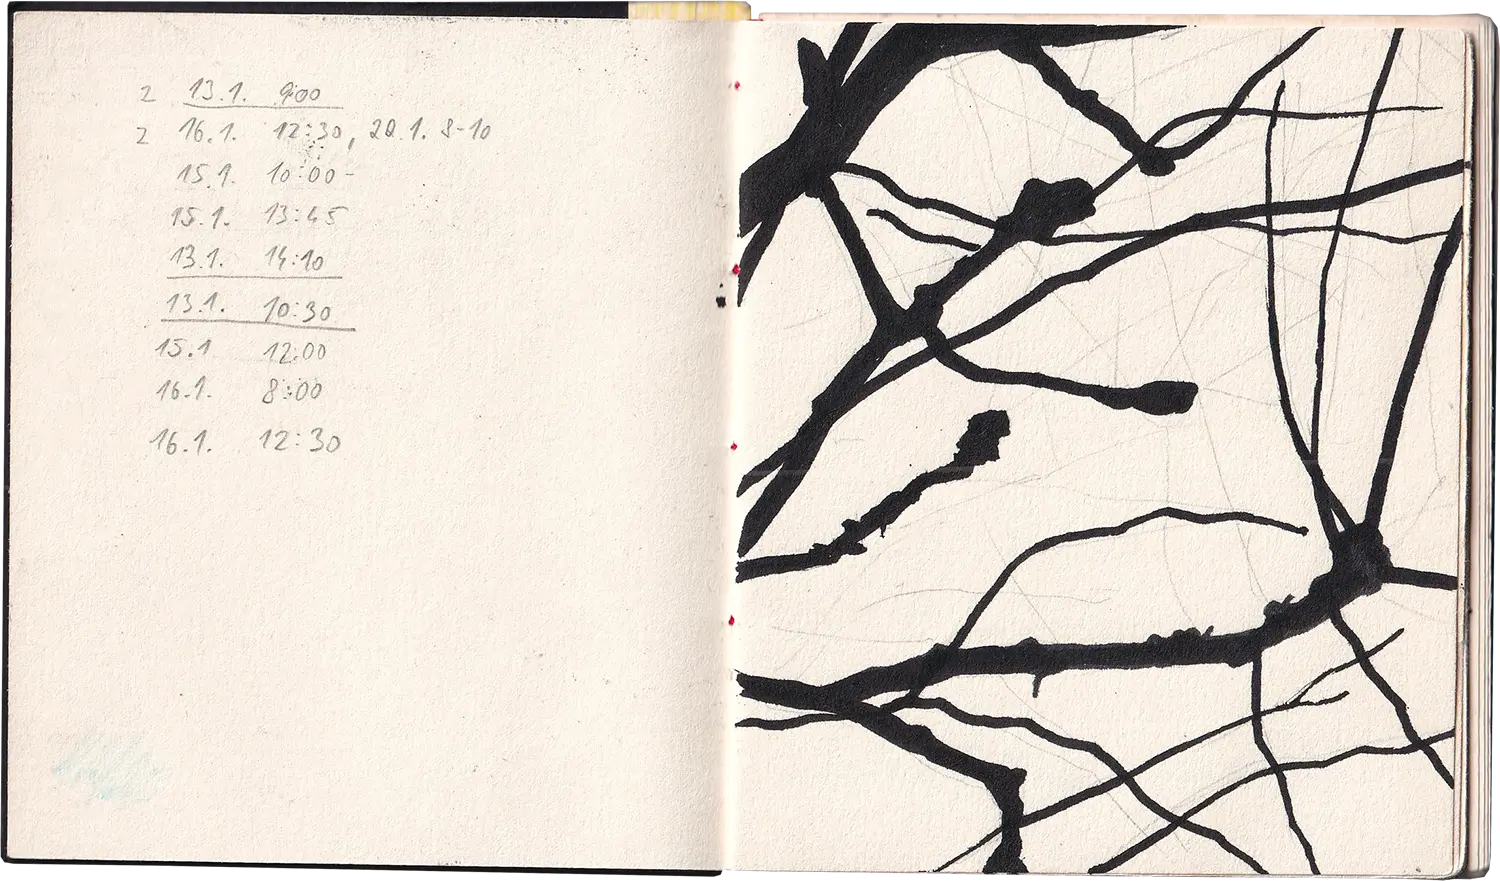 2 13.1. 9:00
2 16.1. 12:30, 20.1. 8-10
15.1. 10:00-
15.1. 13:45
13.1. 14:10
13.1. 10:30
15.1 12:00
16.1. 8:00
16.1. 12:30